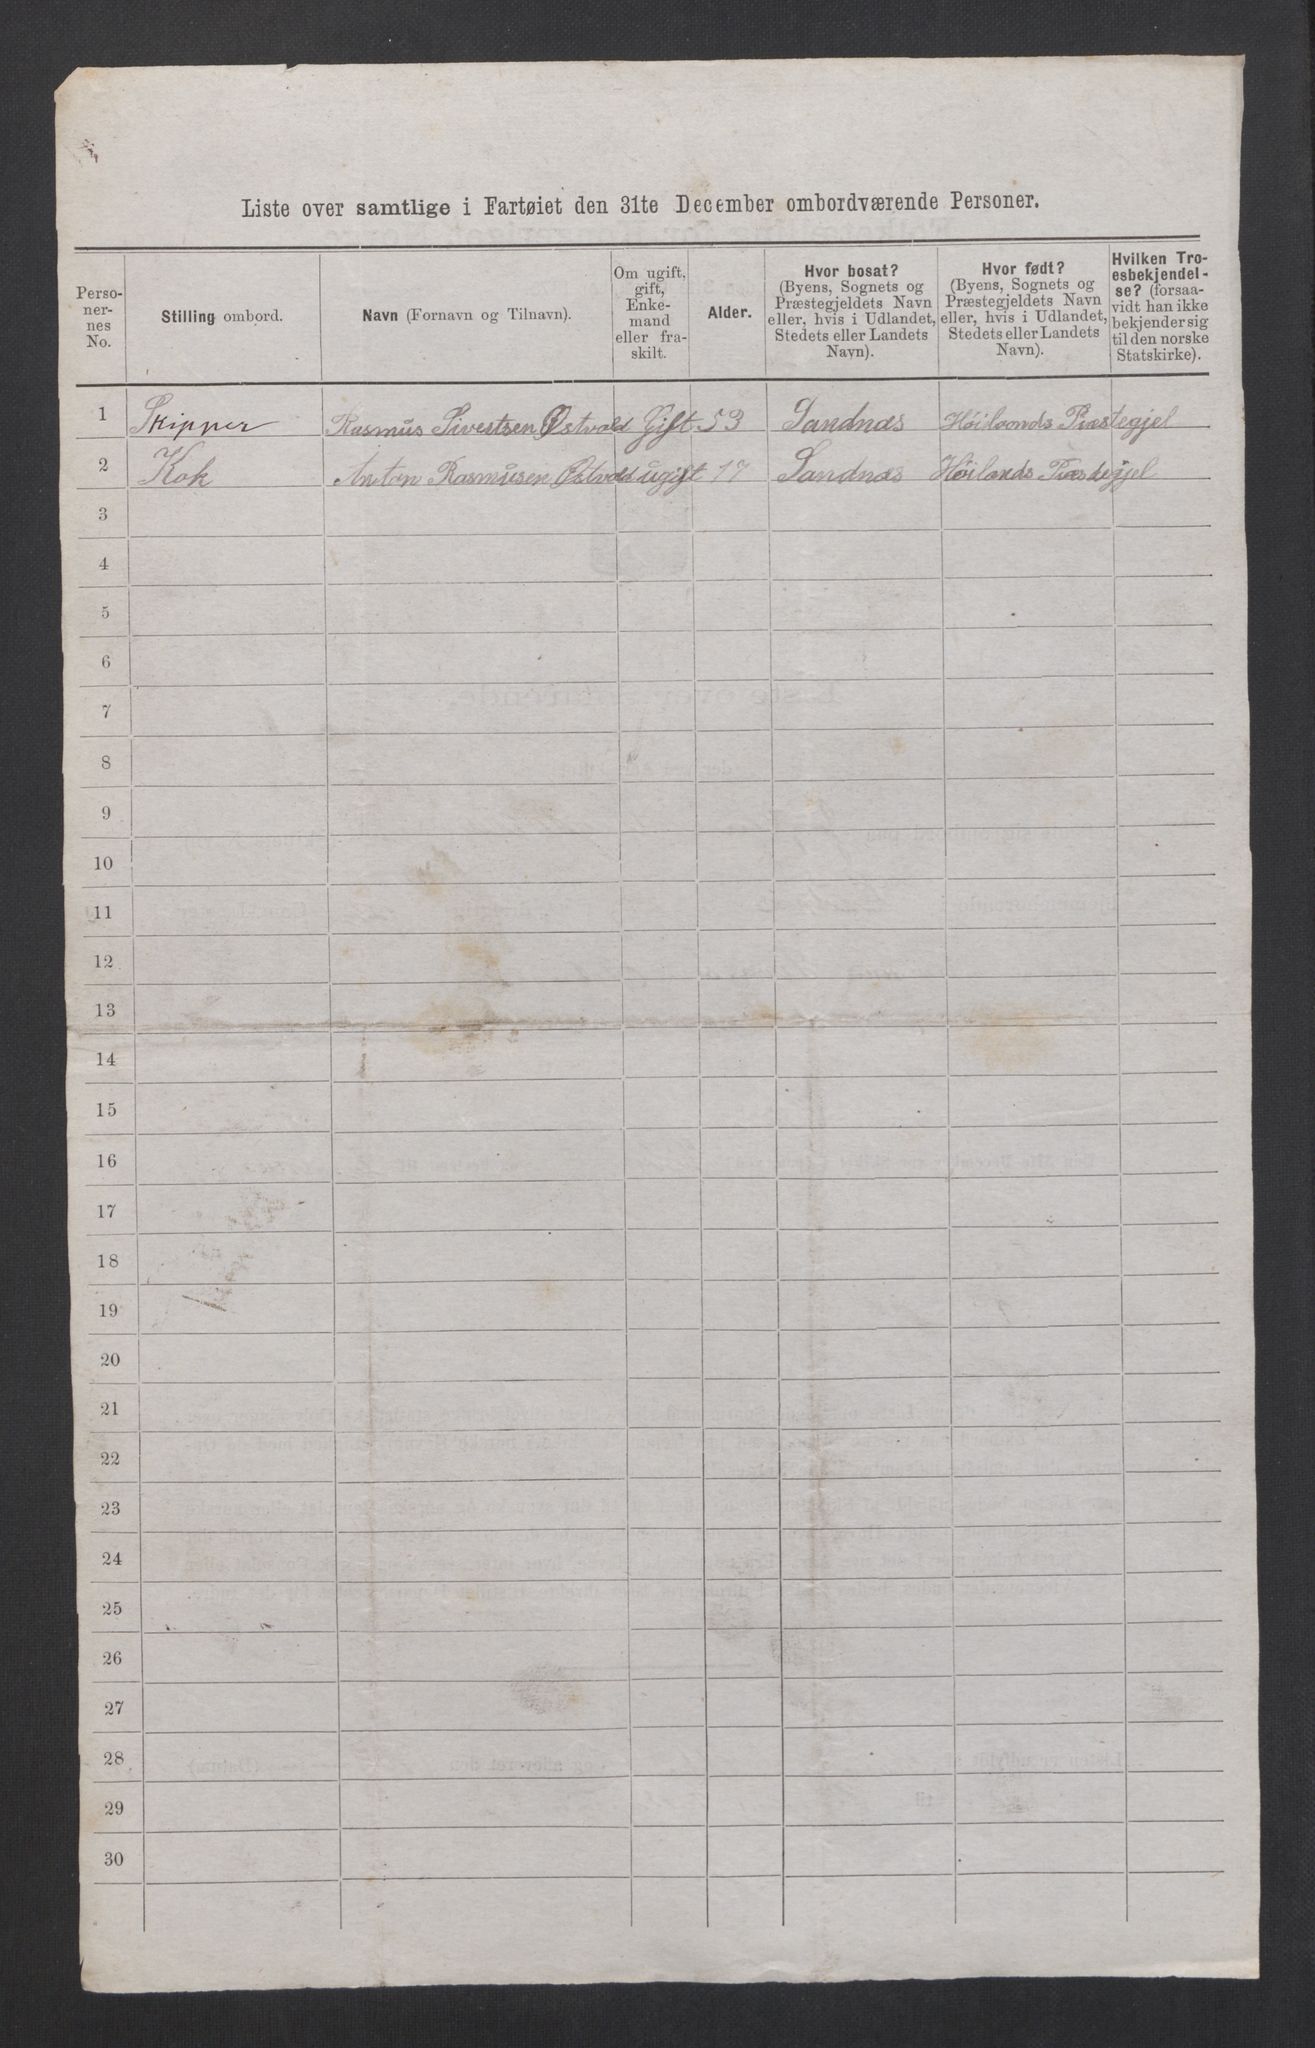 Liste over samtlige i Fartøiet den 31te December ombordværende Personer.
Perso-
ner-
nes
No.
Stilling ombord.
Navn (Fornavn og Tilnavn).
Om ugift,
gift,
Enke-
mand
eller fra-
skilt.
Alder.
Hvor bosat?
(Byens, Sognets og
Præstegjeldets Navn
eller, hvis i Udlandet,
Stedets eller Landets
Navn).
Hvor født?
(Byens, Sognets og
Præstegjeldets Navn
eller, hvis i Udlandet,
Stedets eller Landets
Navn).
Hvilken Tro-
esbekjendel-
se? (forsaa-
vidt han ikke
bekjender sig
til den norske
Statskirke).
1 Skipper Rasmus Sivestsen Østvold Gift 53 Sandnæs Höilaands Præstegjel
2 Kok Anton Rasmusen Østvold ugift 17 Sandnæs Höilands Præstegjel
3
4
5
6
7
8
9
10
11
12
13
14
15
16
17
18
19
20
21
22
23
24
25
26
27
28
29
30